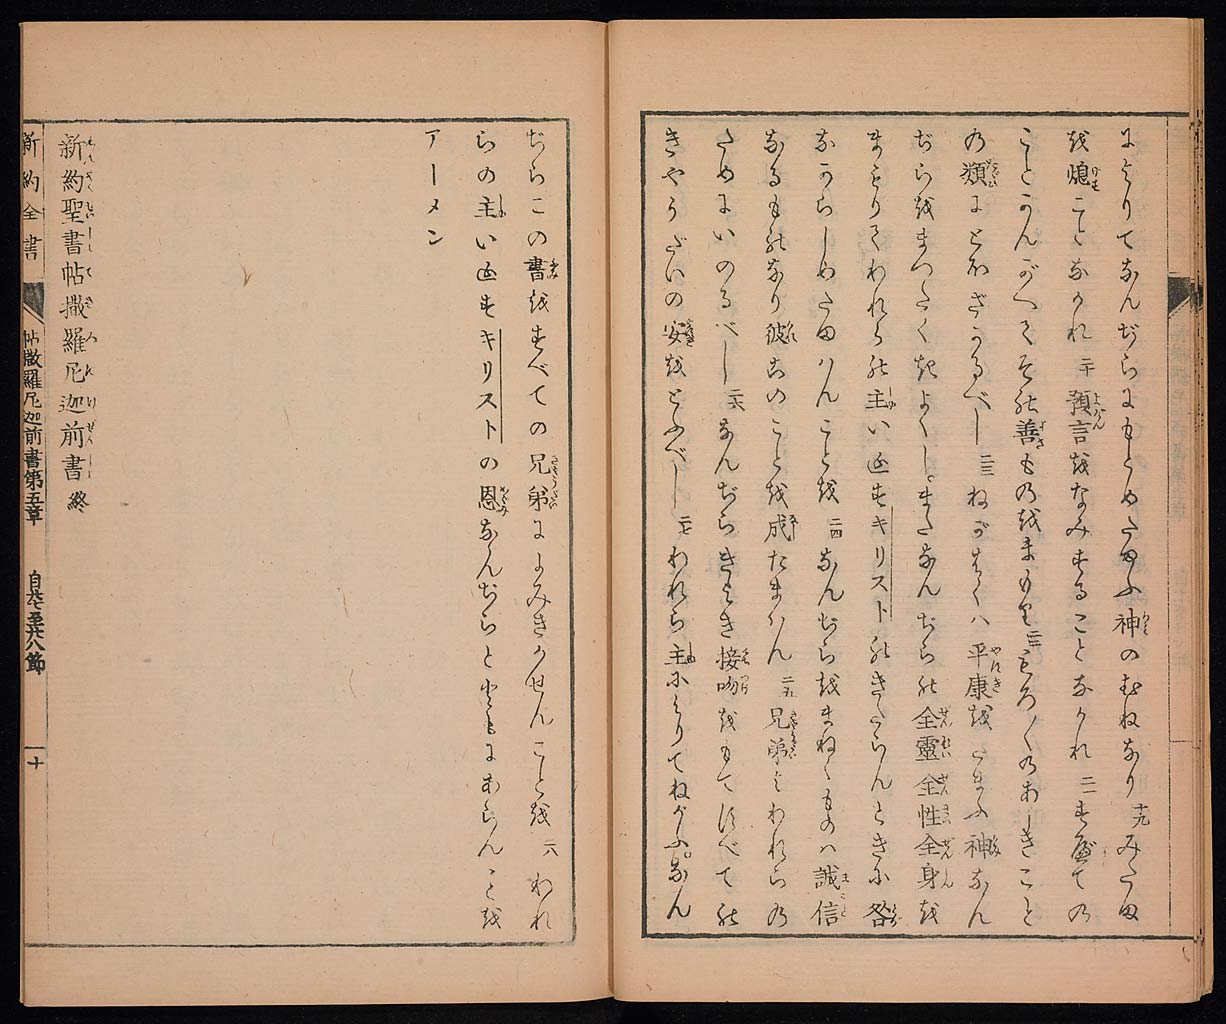 によりてなんぢらにもとめたまふ神のむねなり 十九 みたま
を熄ことなかれ 二十 預言をなみすることなかれ 二一 すべての
ことかんがへてその善ものをまもれ 二二 もろ〳〵のあしきこと
の類にとほざかるべし 二三 ねがはくハ平康をたまふ神なん
ぢらをまつたくきよくし。またなんぢらの全靈全性全身を
まもりてわれらの主いえすキリストのきたらんときに咎
なからしめたまはんことを 二四 なんぢらをまねくものハ誠信
なるものなり彼このことを成たまはん 二五 兄弟よわれらの
ためにいのるべし 二六 なんぢらきよき接吻をもてすべての
きやうだいの安をとふべし 二七 われら主によりてねがふ。なん
ぢらこの書をすべての兄弟によみきかせんことを 二八 われ
らの主いえすキリストの恩なんぢらとともにあらんことを
アーメン
新約聖書帖撒羅尼迦前書 終
新約全書 帖撒羅尼迦前書第五章 自廿七至廿八節 十